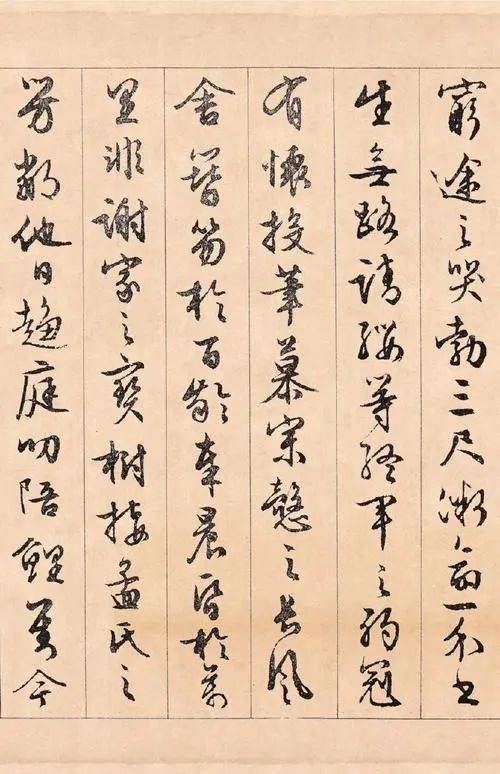 窮途之哭勃三尺微命一介書
生無路請纓等終軍之弱冠
有懷投筆慕宗慤之長風
舍簪笏於百齡奉晨昏於萬
里非謝家之寶樹接孟氏之
芳鄰他日趨庭叨陪鯉對今